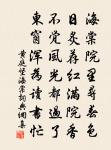 海棠院里尋春色
日炙荐紅滿院香
不覺風光都過了
東窗渾為讀書忙
黃庭堅海棠詞典網書